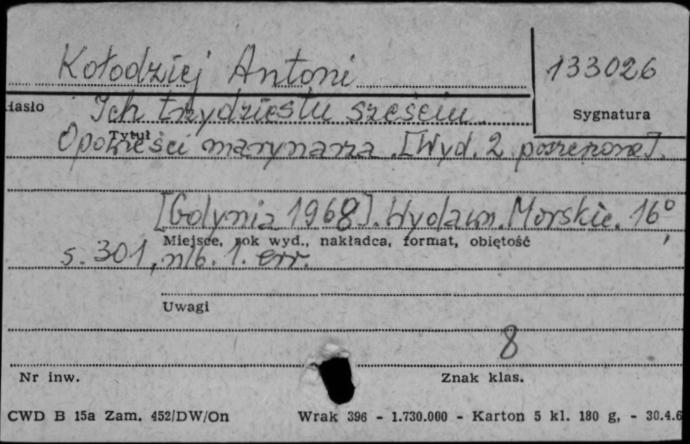 Kołodziej Antoni 133026
Ich trzydziestu sześciu. Sygnatura
Tytuł
Opowieści marynarza. [Wyd. 2 poszerzone].
[Gdynia 1968]. Wydawn. Morskie. 16°,
Miejsce, rok wyd., nakładca, format, objętość
s. 301, nlb. 1. err.
Uwagi
8
Nr inw. Znak klas.
CWD B 15a Zam. 452/DW/On Wrak 396 - 1.730.000 - Karton 5 kl. 180 g, - 30.4.6